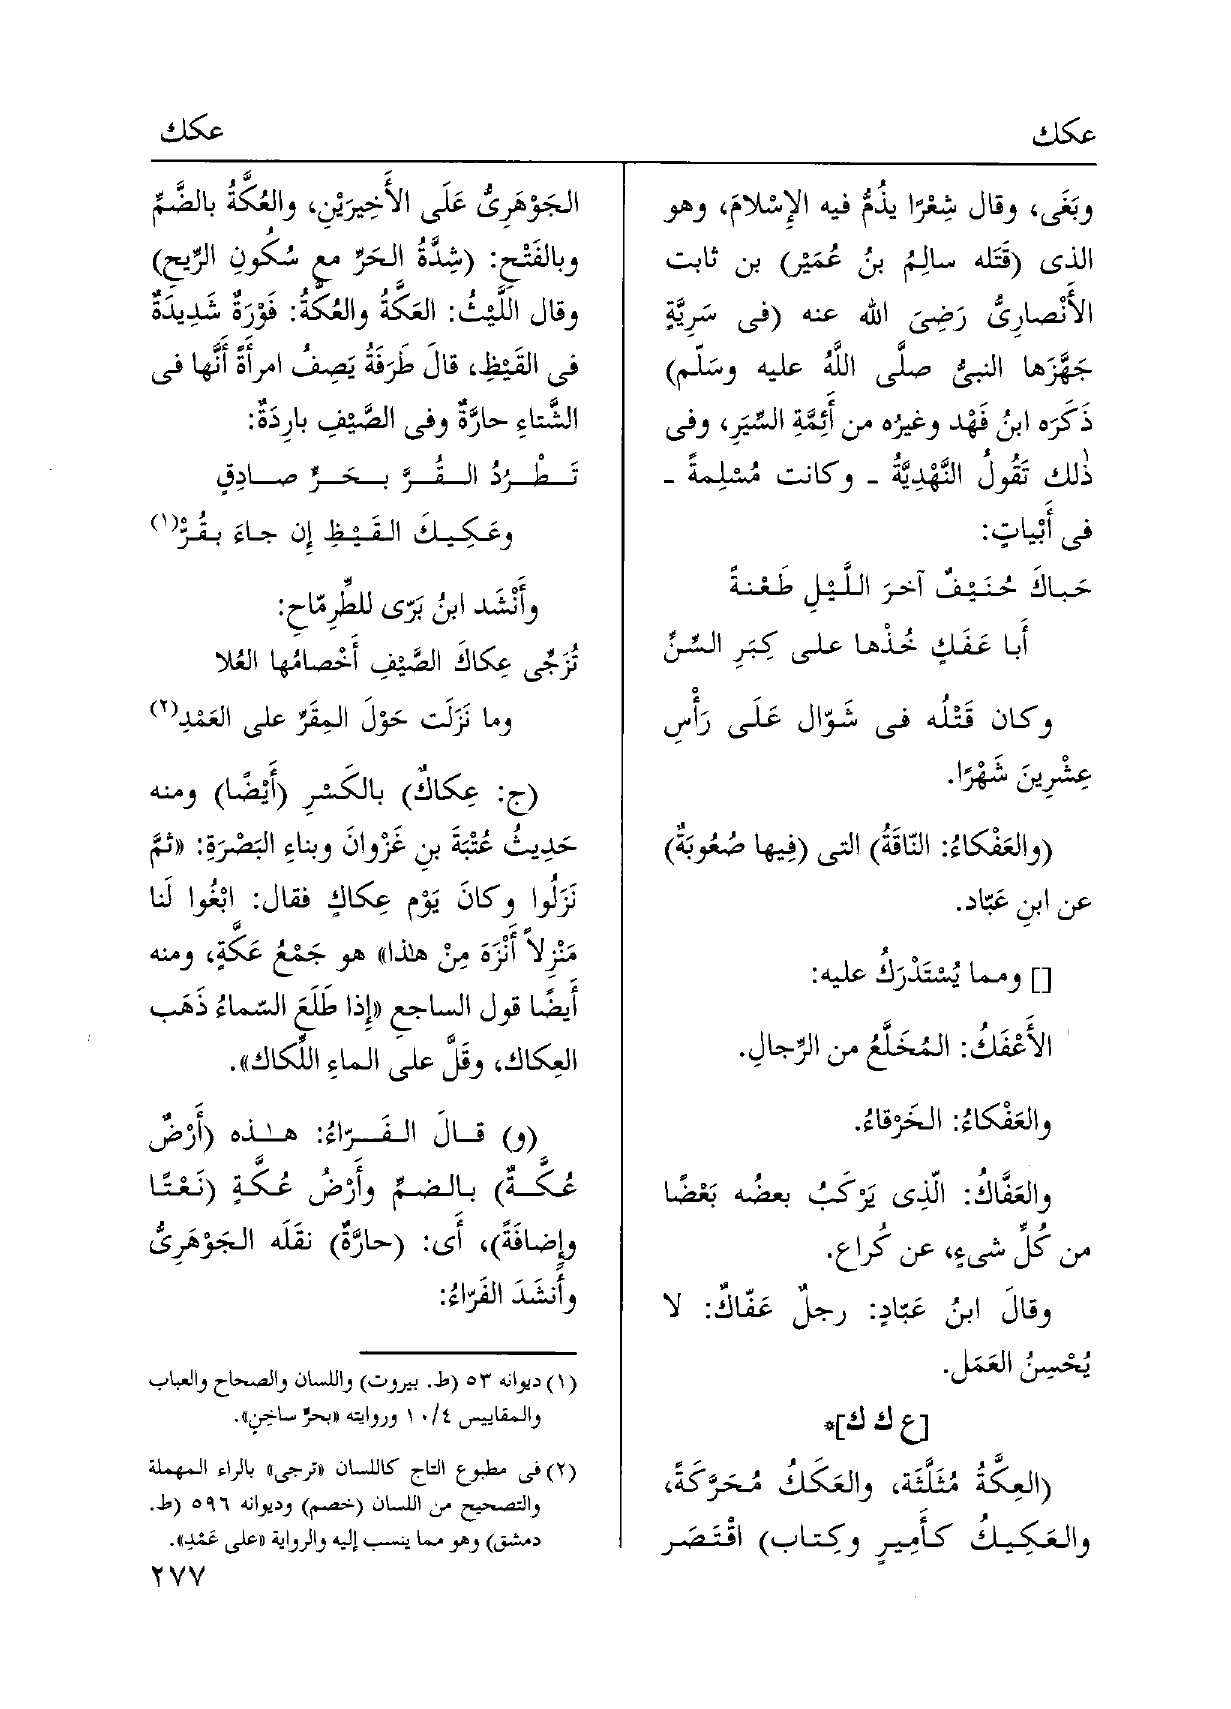 عكك
عكك
وبَغَى، وقال شِعْرًا يذُمُّ فيه الإِسْلامَ، وهو
الذى (قَتَله سالِمُ بنُ عُمَيْر) بن ثابت
الأَنْصارِىُّ رَضِىَ الله عنه (فى سَرِيَّةٍ
جَهَّزَها النبىُّ صلَّى اللَّهُ عليه وسَلّم)
ذَكَرَه ابنُ فَهْد وغيرُه من أَئِمَّةِ السِّيَرِ، وفى
ذٰلك تَقُولُ النَّهْدِيَّةُ - وكانت مُسْلِمةً -
فى أَبْياتٍ:
حَباكَ حُنَيْفٌ آخرَ اللَّيْلِ طَعْنةً
أَبا عَفَكٍ خُذْها على كِبَرِ السِّنِّ
وكان قَتْلُه فى شَوّال عَلَى رَأْسِ
عِشْرِينَ شَهْرًا.
(والعَفْكاءُ: النّاقَةُ) التى (فِيها صُعُوبَةٌ)
عن ابنِ عَبّاد.
[] ومما يُسْتَدْرَكُ عليه:
الأَعْفَكُ: المُخَلَّعُ من الرِّجالِ.
والعَفْكاءُ: الخَرْقاءُ.
والعَفَّاكُ: الّذِى يَرْكَبُ بعضُه بَعْضًا
من كُلِّ شىءٍ، عن كُراع.
وقالَ ابنُ عَبّادٍ: رجلٌ عَفّاكٌ: لا
يُحْسِنُ العَمَل.
[ع ك ك]*
(العِكَّةُ مُثَلَّثَة، والعَكَكُ مُحَرَّكَةً،
والعَكِيكُ كأَمِيرٍ وكِتاب) اقْتَصَر
الجَوْهَرِىُّ عَلَى الأَخِيرَيْنِ، والعُكَّةُ بالضَّمِّ
وبالفَتْحِ: (شِدَّةُ الحَرِّ مع سُكُونِ الرِّيحِ)
وقال اللَّيْثُ: العَكَّةُ والعُكَّةُ: فَوْرَةٌ شَدِيدَةٌ
فى القَيْظِ، قالَ طَرَفَةُ يَصِفُ امرأَةً أَنَّها فى
الشَّتاءِ حارَّةٌ وفى الصَّيْفِ بارِدَةٌ:
تَـطْـرُدُ الـقُـرَّ بـحَـرٍّ صـادِقٍ
وعَكِيكَ القَيْظِ إن جاءَ بقُرّْ(١)
وأَنْشَد ابنُ بَرّى للطِّرِمّاحِ:
تُزَجِّى عِكاكَ الصَّيْفِ أَخْصامُها العُلا
وما نَزَلَت حَوْلَ المِقَرِّ على العَمْدِ(٢)
(ج: عِكاكٌ) بالكَسْرِ (أَيْضًا) ومنه
حَدِيثُ عُتْبَةَ بنِ غَزْوانَ وبناءِ البَصْرَةِ: «ثمَّ
نَزَلُوا وكانَ يَوْم عِكاكٍ فقال: ابْغُوا لَنا
مَنْزِلاً أَنْزَهَ مِنْ هٰذا» هو جَمْعُ عَكَّةٍ، ومنه
أَيضًا قول الساجعِ «إِذا طَلَعَ السّماءُ ذَهَب
العِكاك، وقَلَّ على الماءِ اللِّكاك».
(و) قـالَ الفَـرّاءُ: هـٰذه (أَرْضٌ
عُكَّـةٌ) بالضمِّ وأَرْضُ عُكَّةٍ (نَعْتًا
وإِضافَةً)، أَى: (حارَّةٌ) نقَلَه الجَوْهَرِىُّ
وأَنشَدَ الفَرّاءُ:
(١) ديوانه ٥٣ (ط. بيروت) واللسان والصحاح والعباب
والمقاييس ٤/ ١٠ وروايته «بحرٍّ ساخِنٍ».
(٢) فى مطبوع التاج كاللسان «ترجى» بالراء المهملة
والتصحيح من اللسان (خصم) وديوانه ٥٩٦ (ط.
دمشق) وهو مما ينسب إليه والرواية «على عَمْدِ».
٢٧٧